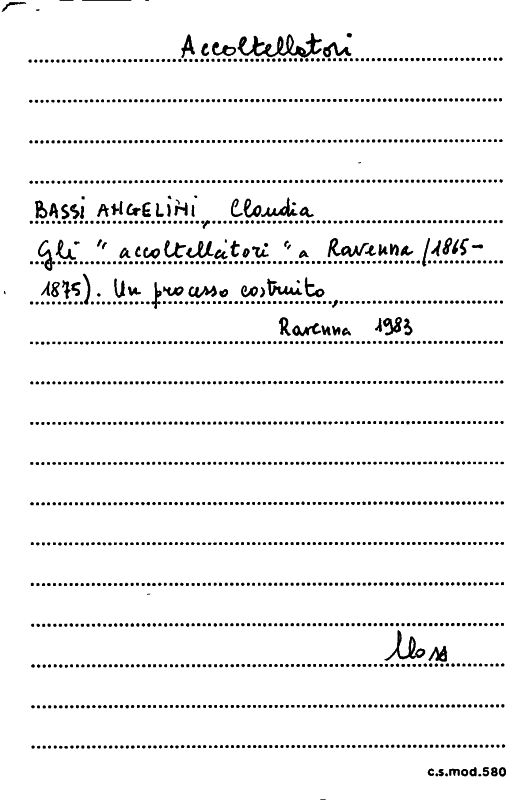 Accoltellatori
BASSI ANGELINI, Claudia
Gli " accoltellatori " a Ravenna (1865-
1875). Un processo costruito,
Ravenna 1983
c.s.mod.580